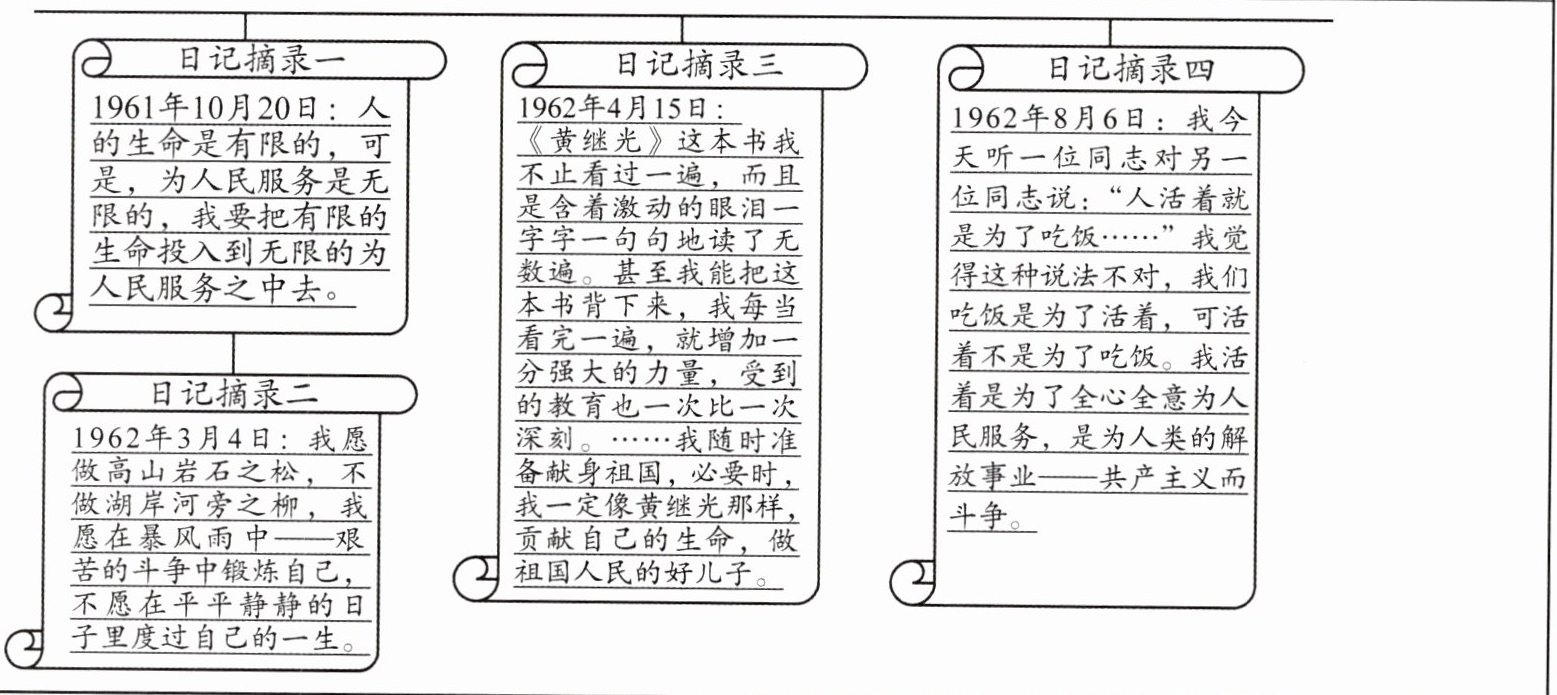 日记摘录一
1961年10月20日：人
的生命是有限的，可
是，为人民服务是无
限的，我要把有限的
生命投入到无限的为
人民服务之中去。
日记摘录二
1962年3月4日：我愿
做高山岩石之松，不
做湖岸河旁之柳，我
愿在暴风雨中——艰
苦的斗争中锻炼自己，
不愿在平平静静的日
子里度过自己的一生。
日记摘录三
1962年4月15日：
《黄继光》这本书我
不止看过一遍，而且
是含着激动的眼泪一
字字一句句地读了无
数遍。甚至我能把这
本书背下来，我每当
看完一遍，就增加一
分强大的力量，受到
的教育也一次比一次
深刻。……我随时准
备献身祖国，必要时，
我一定像黄继光那样，
贡献自己的生命，做
祖国人民的好儿子。
日记摘录四
1962年8月6日：我今
天听一位同志对另一
位同志说：“人活着就
是为了吃饭……”我觉
得这种说法不对，我们
吃饭是为了活着，可活
着不是为了吃饭。我活
着是为了全心全意为人
民服务，是为人类的解
放事业——共产主义而
斗争。